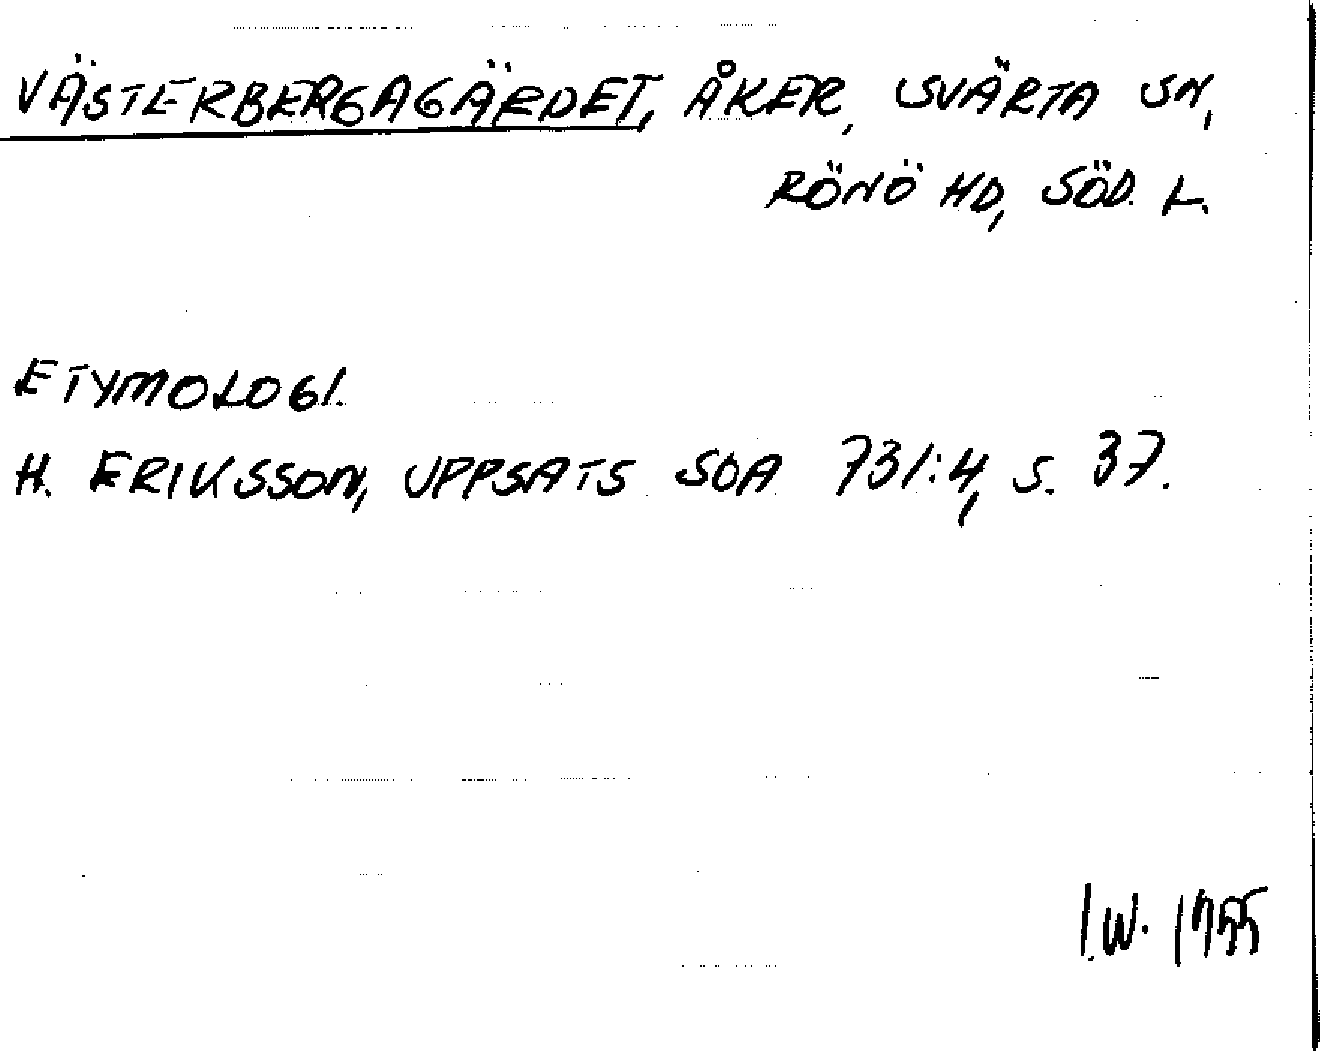 VÄSTERBERGAGÄRDET, ÅKER, SVÄRTA SN,
RÖNÖ HD, SÖD. L.
ETYMOLOGI.
H. ERIKSSON, UPPSATS SOA 731:4, S. 37.
I.W. 1955